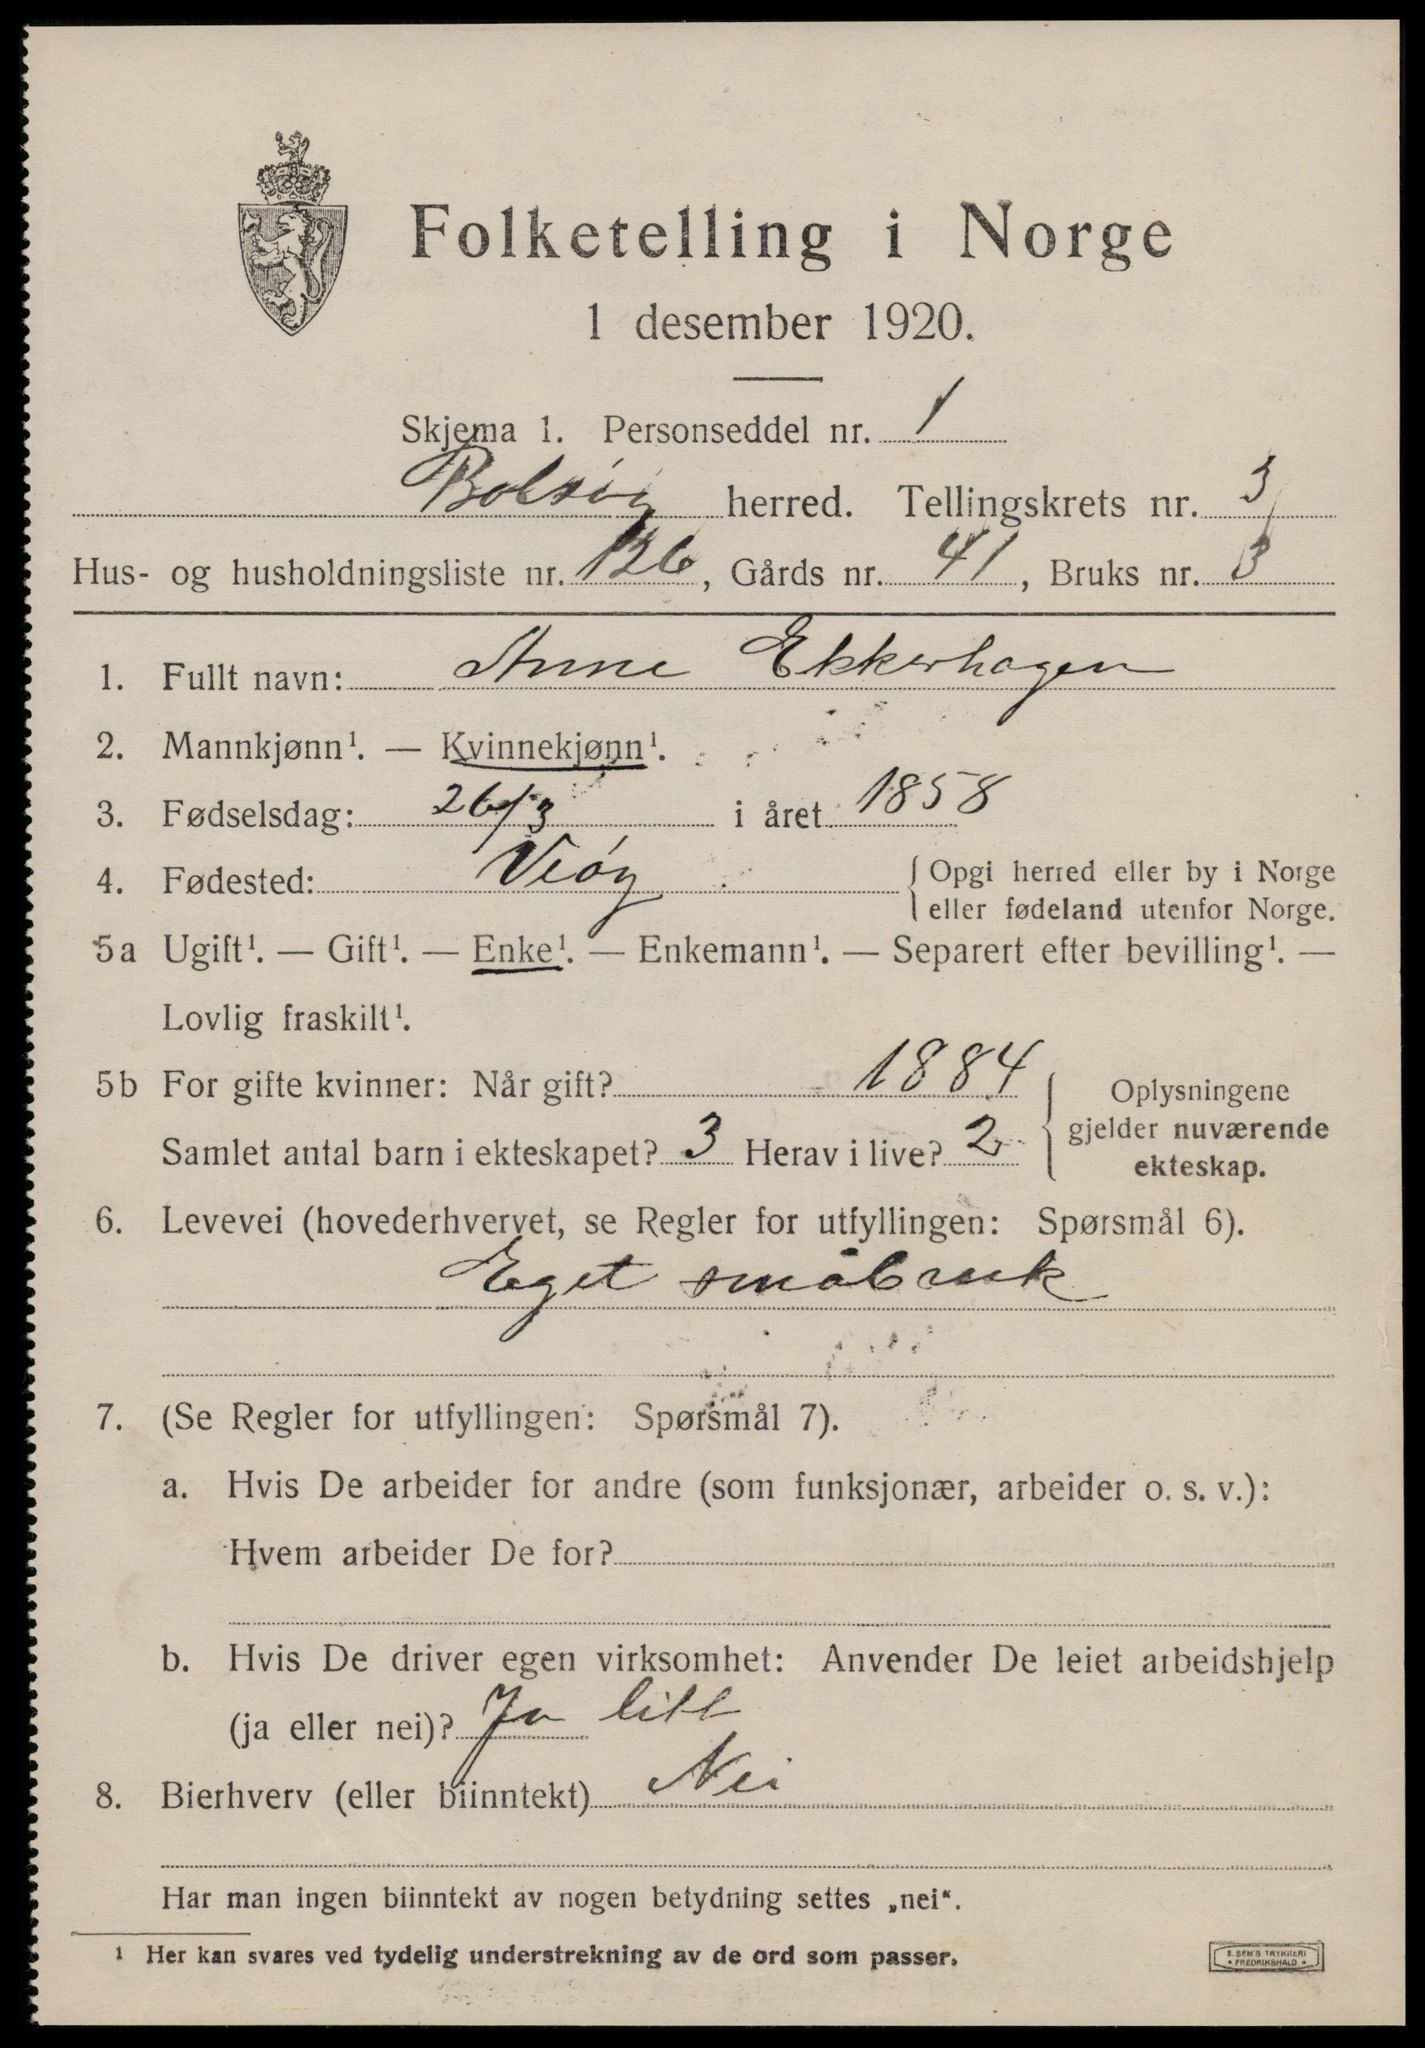 Folketelling i Norge
1 desember 1920.
Skjema 1. Personseddel nr. 1
Bolsøy herred. Tellingskrets nr. 3
Hus- og husholdningsliste nr. 126, Gårds nr. 41, Bruks nr. 3
1. Fullt navn: Anne Ekkerhagen
2. Mannkjønn¹. — Kvinnekjønn¹.
3. Fødselsdag: 26/3 i året 1858
4. Fødested: Veøy { Opgi herred eller by i Norge
eller fødeland utenfor Norge.
5a Ugift¹. — Gift¹. — Enke¹. — Enkemann¹. — Separert efter bevilling¹. —
Lovlig fraskilt¹.
5b For gifte kvinner: Når gift? 1884
Samlet antal barn i ekteskapet? 3 Herav i live? 2
{ Oplysningene
gjelder nuværende
ekteskap.
6. Levevei (hovederhvervet, se Regler for utfyllingen: Spørsmål 6).
Eget småbruk
7. (Se Regler for utfyllingen: Spørsmål 7).
a. Hvis De arbeider for andre (som funksjonær, arbeider o. s. v.):
Hvem arbeider De for?
b. Hvis De driver egen virksomhet: Anvender De leiet arbeidshjelp
(ja eller nei)? Ja litt
8. Bierhverv (eller biinntekt) Nei
Har man ingen biinntekt av nogen betydning settes „nei“.
¹ Her kan svares ved tydelig understrekning av de ord som passer.
E. SEM'S TRYKKERI
• FREDRIKSHALD •